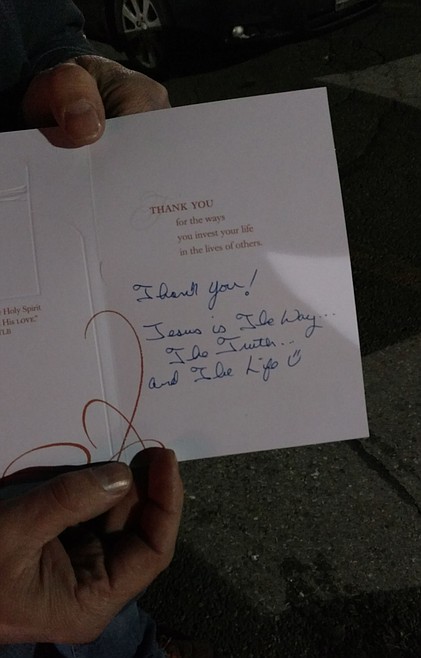 Holy Spirit
His LOVE."
TLB
THANK YOU
for the ways
you invest your life
in the lives of others.
Thank You!
Jesus is The Way...
The Truth...
and The Life